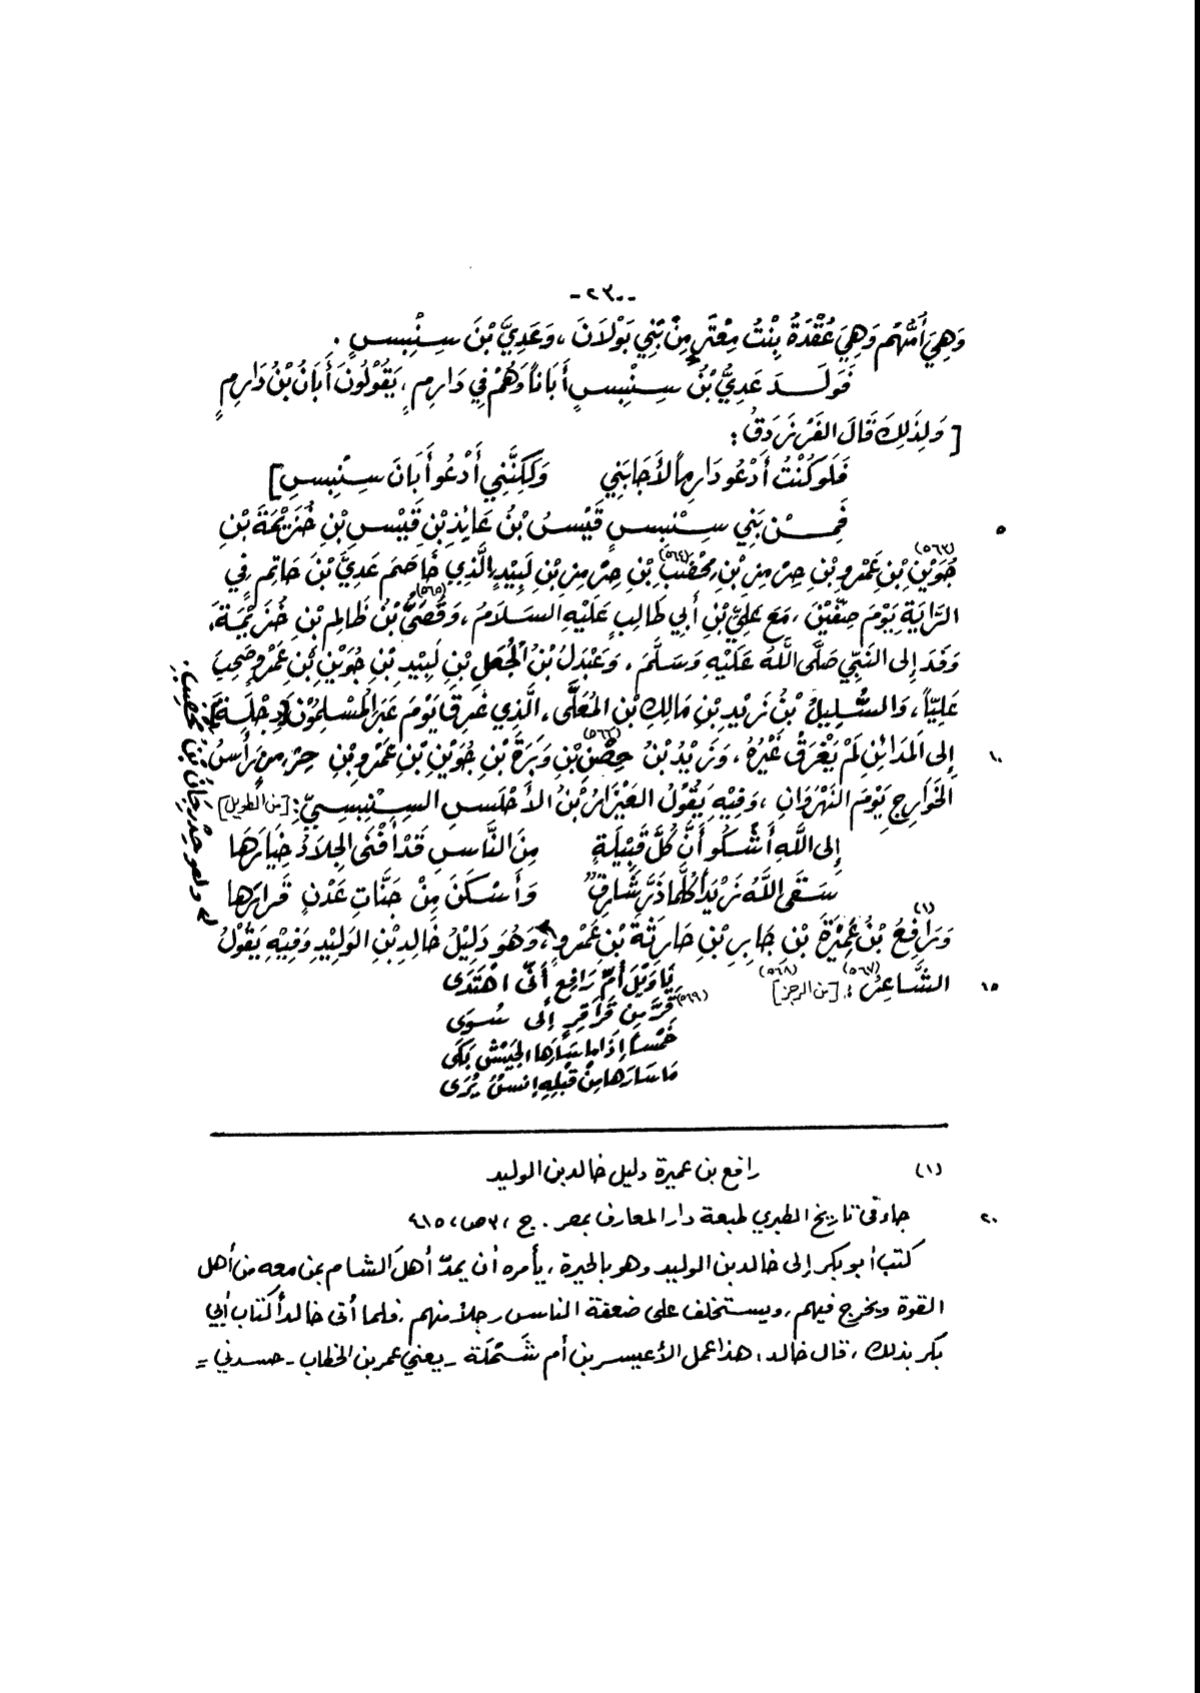 -٢٣٠-
وَهِيَ أُمُّهُم وَهِيَ عُقْدَةُ بِنْتُ مِعْتَرٍ مِنْ بَنِي بَوْلَانَ ، وَعَدِيَّ بْنَ سِنْبِسٍ .
فَوَلَدَ عَدِيُّ بْنُ سِنْبِسٍ أَبَاناً وَهُمْ فِي دَارِمٍ ، يَقُوْلُونَ أَبَانُ بْنُ دَارِمٍ
[ وَلِذَلِكَ قَالَ الفَرَزْدَقُ :
فَلَو كُنْتُ أَدْعُو دَارِماً لأَجَابَنِي وَلَكِنَّنِي أَدْعُو أَبَانَ سِنْبِسِ ]
فَمِنْ بَنِي سِنْبِسٍ قَيْسُ بْنُ عَائِذِ بْنِ قَيْسِ بْنِ خُزَيْمَةَ بْنِ ٥
جُوَيْنِ (٥٦٣) بْنِ عَمْرِو بْنِ حِرْمِزِ بْنِ مُحْصَبِ (٥٦٤) بْنِ حِرْمِزِ بْنِ لَبِيْدٍ الَّذِي خَاصَمَ عَدِيَّ بْنَ حَاتِمٍ فِي
الرَّايَةِ يَوْمَ صِفِّيْنَ ، مَعَ عَلِيِّ بْنِ أَبِي طَالِبٍ عَلَيْهِ السَلَامُ ، وَقُصَيُّ (٥٦٥) بْنُ ظَالِمِ بْنِ خُزَيْمَةَ ،
وَفَدَ إِلَى النَبِّيِ صَلَّى اللَّهُ عَلَيْهِ وَسَلَّمَ ، وَعَبْدَلُ بْنُ الجُعَلِ بْنِ لَبِيْدِ بْنِ جُوَيْنِ بْنِ عَمْرٍو صَحِبَ
عَلِيّاً ، وَالسَّلِيلُ بْنُ زَيْدِ بْنِ مَالِكِ بْنِ المُعَلَّى ، الَّذِي غَرِقَ يَوْمَ عَبَرَ المُسْلِمُوْنَ دِجْلَةَ
إِلَى المَدَائِنِ لَمْ يَغْرَقْ غَيْرُهُ ، وَزَيْدُ بْنُ حِصْنِ (٥٦٦) بْنِ وَبَرَةَ بْنِ جُوَيْنِ بْنِ عَمْرِو بْنِ حِرْمِزٍ رَأْسُ ١٠
الخَوَارِجِ يَوْمَ النَهْرَوَانِ ، وَفِيْهِ يَقُوْلُ العَيْزَارُ بْنُ الأَخْنَسِ السِنْبِسِيّ : [من الطويل]
إِلَى اللَّهِ أَشْكُو أَنَّ كُلَّ قَبِيْلَةٍ مِنَ النَّاسِ قَدْ أَفْنَى الجِلَادُ خِيَارَهَا
سَقَى اللَّهُ زَيْداً كُلَّمَا ذَرَّ شَارِقٌ وَأَسْكَنَ مِنْ جَنَّاتِ عَدْنٍ قَرَارَهَا
وَرَافِعُ (١) بْنُ عَمِيْرَةَ بْنِ جَابِرِ بْنِ حَارِثَةَ بْنِ عَمْرٍو ، وَهُوَ دَلِيْلُ خَالِدِ بْنِ الوَلِيْدِ وَفِيْهِ يَقُوْلُ
الشَّاعِرُ (٥٦٧) : [من الرجز] (٥٦٨) يَا وَيْلَ أُمِّ رَافِعٍ أَنَّى اهْتَدَى ١٥
(٥٦٩) قَرَّ مِنْ قَرَاقِرٍ إِلَى سُوَى
خَمْساً إِذَا مَا سَارَهَا الجَيْشُ بَكَى
مَا سَارَهَا مِنْ قَبْلِهِ إِنْسٌ يُرَى
وهو حِدْرِجَانُ بْنُ مُحْصِبٍ .
(١) رافع بن عميرة دليل خالد بن الوليد
جاء في تاريخ الطبري طبعة دار المعارف بمصر . ج ، ٣ ص ، ٤١٥ ٢٠
كتب أبو بكر إلى خالد بن الوليد وهو بالحيرة ، يأمره أن يمدّ أهلَ الشام بمن معه من أهل
القوة ويخرج فيهم ، ويستخلف على ضعفة الناس رجلاً منهم ، فلما أتى خالداً كتاب أبي
بكر بذلك ، قال خالد : هذا عمل الأُعيسر بن أم شَمْلَة - يعني عمر بن الخطاب - حسدني =